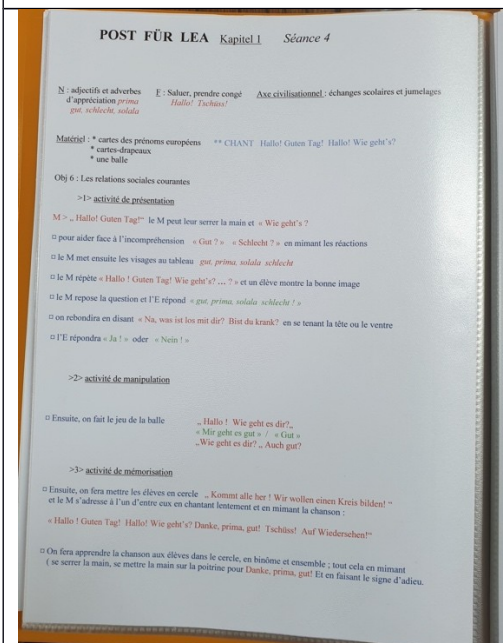 POST FÜR LEA Kapitel 1 Séance 4
N : adjectifs et adverbes F : Saluer, prendre congé Axe civilisationnel : échanges scolaires et jumelages
d'appréciation prima Hallo! Tschüss!
gut, schlecht, solala
Matériel : * cartes des prénoms européens ** CHANT Hallo! Guten Tag! Hallo! Wie geht's?
* cartes-drapeaux
* une balle
Obj 6 : Les relations sociales courantes
>1> activité de présentation
M > „ Hallo! Guten Tag!" le M peut leur serrer la main et « Wie geht's ?
¤ pour aider face à l'incompréhension « Gut ? » « Schlecht ? » en mimant les réactions
¤ le M met ensuite les visages au tableau gut, prima, solala schlecht
¤ le M répète « Hallo ! Guten Tag! Wie geht's? ... ? » et un élève montre la bonne image
¤ le M repose la question et l'E répond « gut, prima, solala schlecht ! »
¤ on rebondira en disant « Na, was ist los mit dir? Bist du krank? en se tenant la tête ou le ventre
¤ l'E répondra « Ja ! » oder « Nein ! »
>2> activité de manipulation
¤ Ensuite, on fait le jeu de la balle „ Hallo ! Wie geht es dir?„
« Mir geht es gut » / « Gut »
„Wie geht es dir? „ Auch gut?
>3> activité de mémorisation
¤ Ensuite, on fera mettre les élèves en cercle „ Kommt alle her ! Wir wollen einen Kreis bilden! "
et le M s'adresse à l'un d'entre eux en chantant lentement et en mimant la chanson :
« Hallo ! Guten Tag! Hallo! Wie geht's? Danke, prima, gut! Tschüss! Auf Wiedersehen!"
¤ On fera apprendre la chanson aux élèves dans le cercle, en binôme et ensemble ; tout cela en mimant
( se serrer la main, se mettre la main sur la poitrine pour Danke, prima, gut! Et en faisant le signe d'adieu.